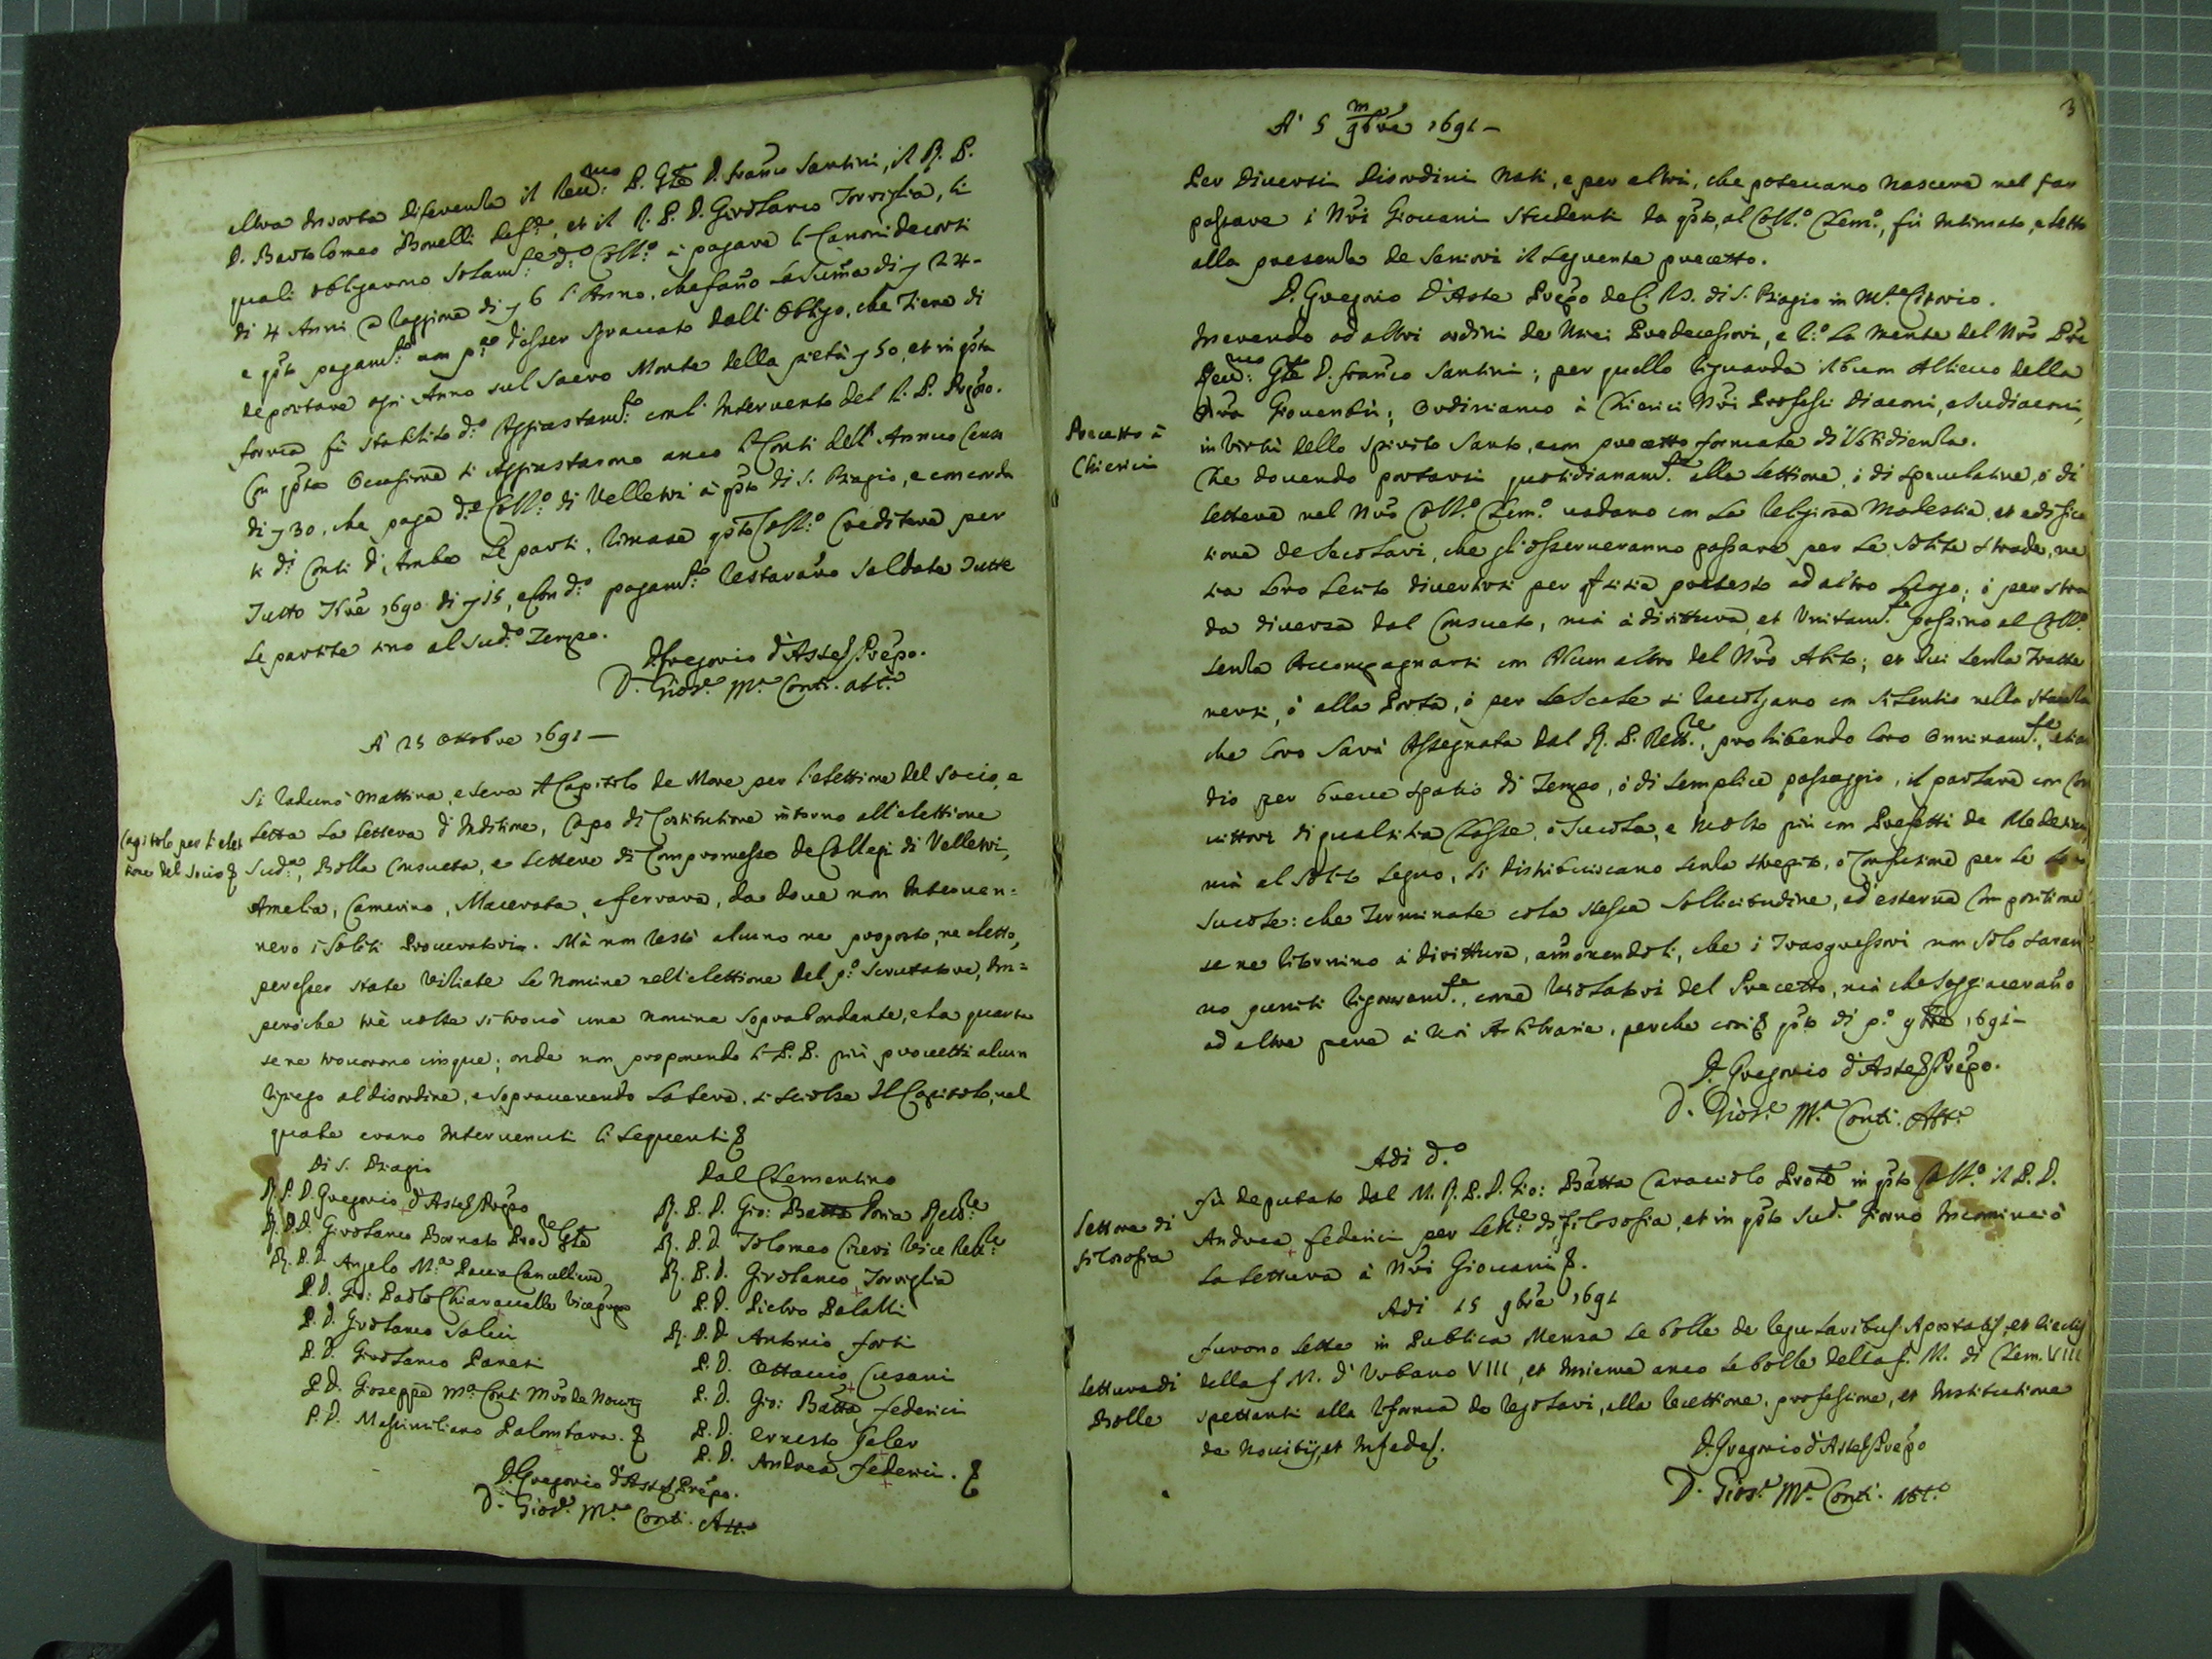 altra insorta diferenza il Reu.mo P. Gnle D. Franco Santini, il R. P.
D. Bartolomeo Bonelli, et il R. P. D. Girolamo Torriglia, li
quali obligarono solam.te d.o Coll.o à pagare li Canoni decorsi
di 4 Anni à raggione di 6 l'Anno, che fano la suma di 24-
e qsto pagam.to non p.a d'esser sgrauato dall'obligo, che tiene di
deportare ogni Anno sul Sacro Monte della pietà 50, et in qsta
forma fù stabilito d.o Aggiustam.to con l'interuento del R. P. Prepo.
Con qsta occasione si aggiustarono anco li Conti dell'Annuo Censo
di 30, che paga d.o Coll.o di Velletri à qsto di S. Biagio, e concorda
ti d.i Conti d'Ambe le parti, rimase qsto Coll.o Creditore per
tutto 1690 di 15, e con d.o pagam.to restarano saldate tutte
le partite sino al sud.o tempo.
D. Gregorio d'Aste Prepo.
D. Gios.e M.a Conti Att.o
A' 25 ottobre 1691 —
Si radunò mattina, e sera il Capitolo de More per l'elettione del socio, e
letta la lettera d'Inditione, Capo di Costitutione intorno all'elettione
Capitolo per l'elet
tione del socio
sud.a, Bolla consueta, e lettere di Compromesso de Collegi di Velletri,
Amelia, Camerino, Macerata, e ferrara, da doue non interuen=
nero i soliti Procuratori. Mà non restò alcuno ne proposto, ne eletto,
per esser state visiate le Nomine nell'elettione del p.o scrutatore, Im=
peroche trè uolte si trouò una nomina soprabondante, e la quarta
se ne trouorono cinque; onde non proponendo li P. P. più prouetti alcun
ripiego al disordine, e soprauenendo la sera, si sciolse Il Capitolo, nel
quale erano interuenuti li seguenti
Di S. Biagio
R. P. D. Gregorio d'Aste Prepo
R. P. D. Girolamo Bornato
R. P. D. Angelo M.a Pacia Cancelliere
P. D. Gio: Paolo Chiaraualle Viceprepo
P. D. Girolamo Salici
P. D. Girolamo Paneti
P. D. Gioseppe M.a Conti Mro de Nouizij
P. D. Massimiliano Palombara.
Dal Clementino
R. P. D. Gio: Batta Poria Rett.re
R. P. D. Tolomeo Creui Vice Rett.re
R. P. D. Girolamo Torriglia
P. D. Pietro Palatti
R. P. D. Antonio forti
P. D. Ottauio Cusani
P. D. Gio: Batta Federici
P. D. Ernesto Galer
P. D. Andrea Federici.
D. Gregorio d'Aste Prepo.
D. Gios.e M.a Conti. Att.o
3
A' 5 9bre 1691 —
Per diuersi disordini nati, e per altri, che poteuano nascere nel far
passare i Nri Giouani studenti da qsto, al Coll.o Clem.o, fù intimato, e letto
alla presenza de Seniori il seguente precetto.
D. Gregorio D'Aste Prepo del C. N. di S. Biagio in M.te Citorio.
Inerendo ad altri ordini de Miei Predecessori, e la mente del Nro Pre
Reu.mo Gnle D. Franco Santini; per quello riguarda il buon Allieuo della
Nra Giouentù; ordiniamo à Chierici Nri Professi diaconi, e sudiaconi,
Precetto à
Chierici
in virtù dello Spirito Santo, e con precetto formale di Vbbidienza.
Che douendo portarsi quotidianam.te alla lettione, ò di speculatiue, ò di
lettere nel Nro Coll.o Clem.o uadano con la religiosa modestia, et edifica
tione de secolari, che gl'osserueranno passare per le solite strade, ne
sia loro lecito diuertirsi per qlsisia pretesto ad altro luogo; ò per stra
da diuersa dal Consueto, mà à dirittura, et Vnitam.te passino al Coll.o
senza Accompagnarsi con Alcun altro del Nro Abito; et iui senza tratte
nersi, ò alla Porta, ò per le scale si raccolgano con silentio nella stanza
che loro sarà Assegnata dal R. P. Rett.re, prohibendo loro Onninam.te, etian
dio per breue spatio di tempo, ò di semplice passaggio, il parlare con Con
uittori di qualsisia Classe, ò scuola, e molto più con Prefetti de Medesimi,
mà al solito segno, si distribuiscano senza strepito, ò confusione per le
scuole: che terminate co la stessa sollicitudine, ed esterna compositione
se ne ritornino à dirittura, amonendoli, che i Trasgressori non solo saran
no puniti rigorosam.te, come uiolatori del Precetto, mà che soggiacerano
ad altre pene à Noi Arbitrarie, perche cosi qsto di p.o 9bre 1691 —
D. Gregorio d'Aste Prepo.
D. Gios.e M.a Conti. Att.o
Adi d.o
Fù deputato dal M. R. P. D. Gio: Batta Caracciolo Prole in qsto Coll.o il P. D.
Lettore di
filosofia
Andrea Federici per Lett.re di filosofia, et in qsto sud.o giorno Incominciò
la lettura à Nri Giouani.
Adi 15 9bre 1691
Furono lette in publica Mensa le bolle de regularibus Apostatis, et eiectis
Lettura di
Bolle
della f. M. d'Vrbano VIII, et insieme anco le bolle della f. M. di Clem. VIII
spettanti alla riforma de regolari, alla recettione, professione, et institutione
de Nouitij, et in fede.
D. Gregorio d'Aste Prepo
D. Gios.e M.a Conti. Att.o